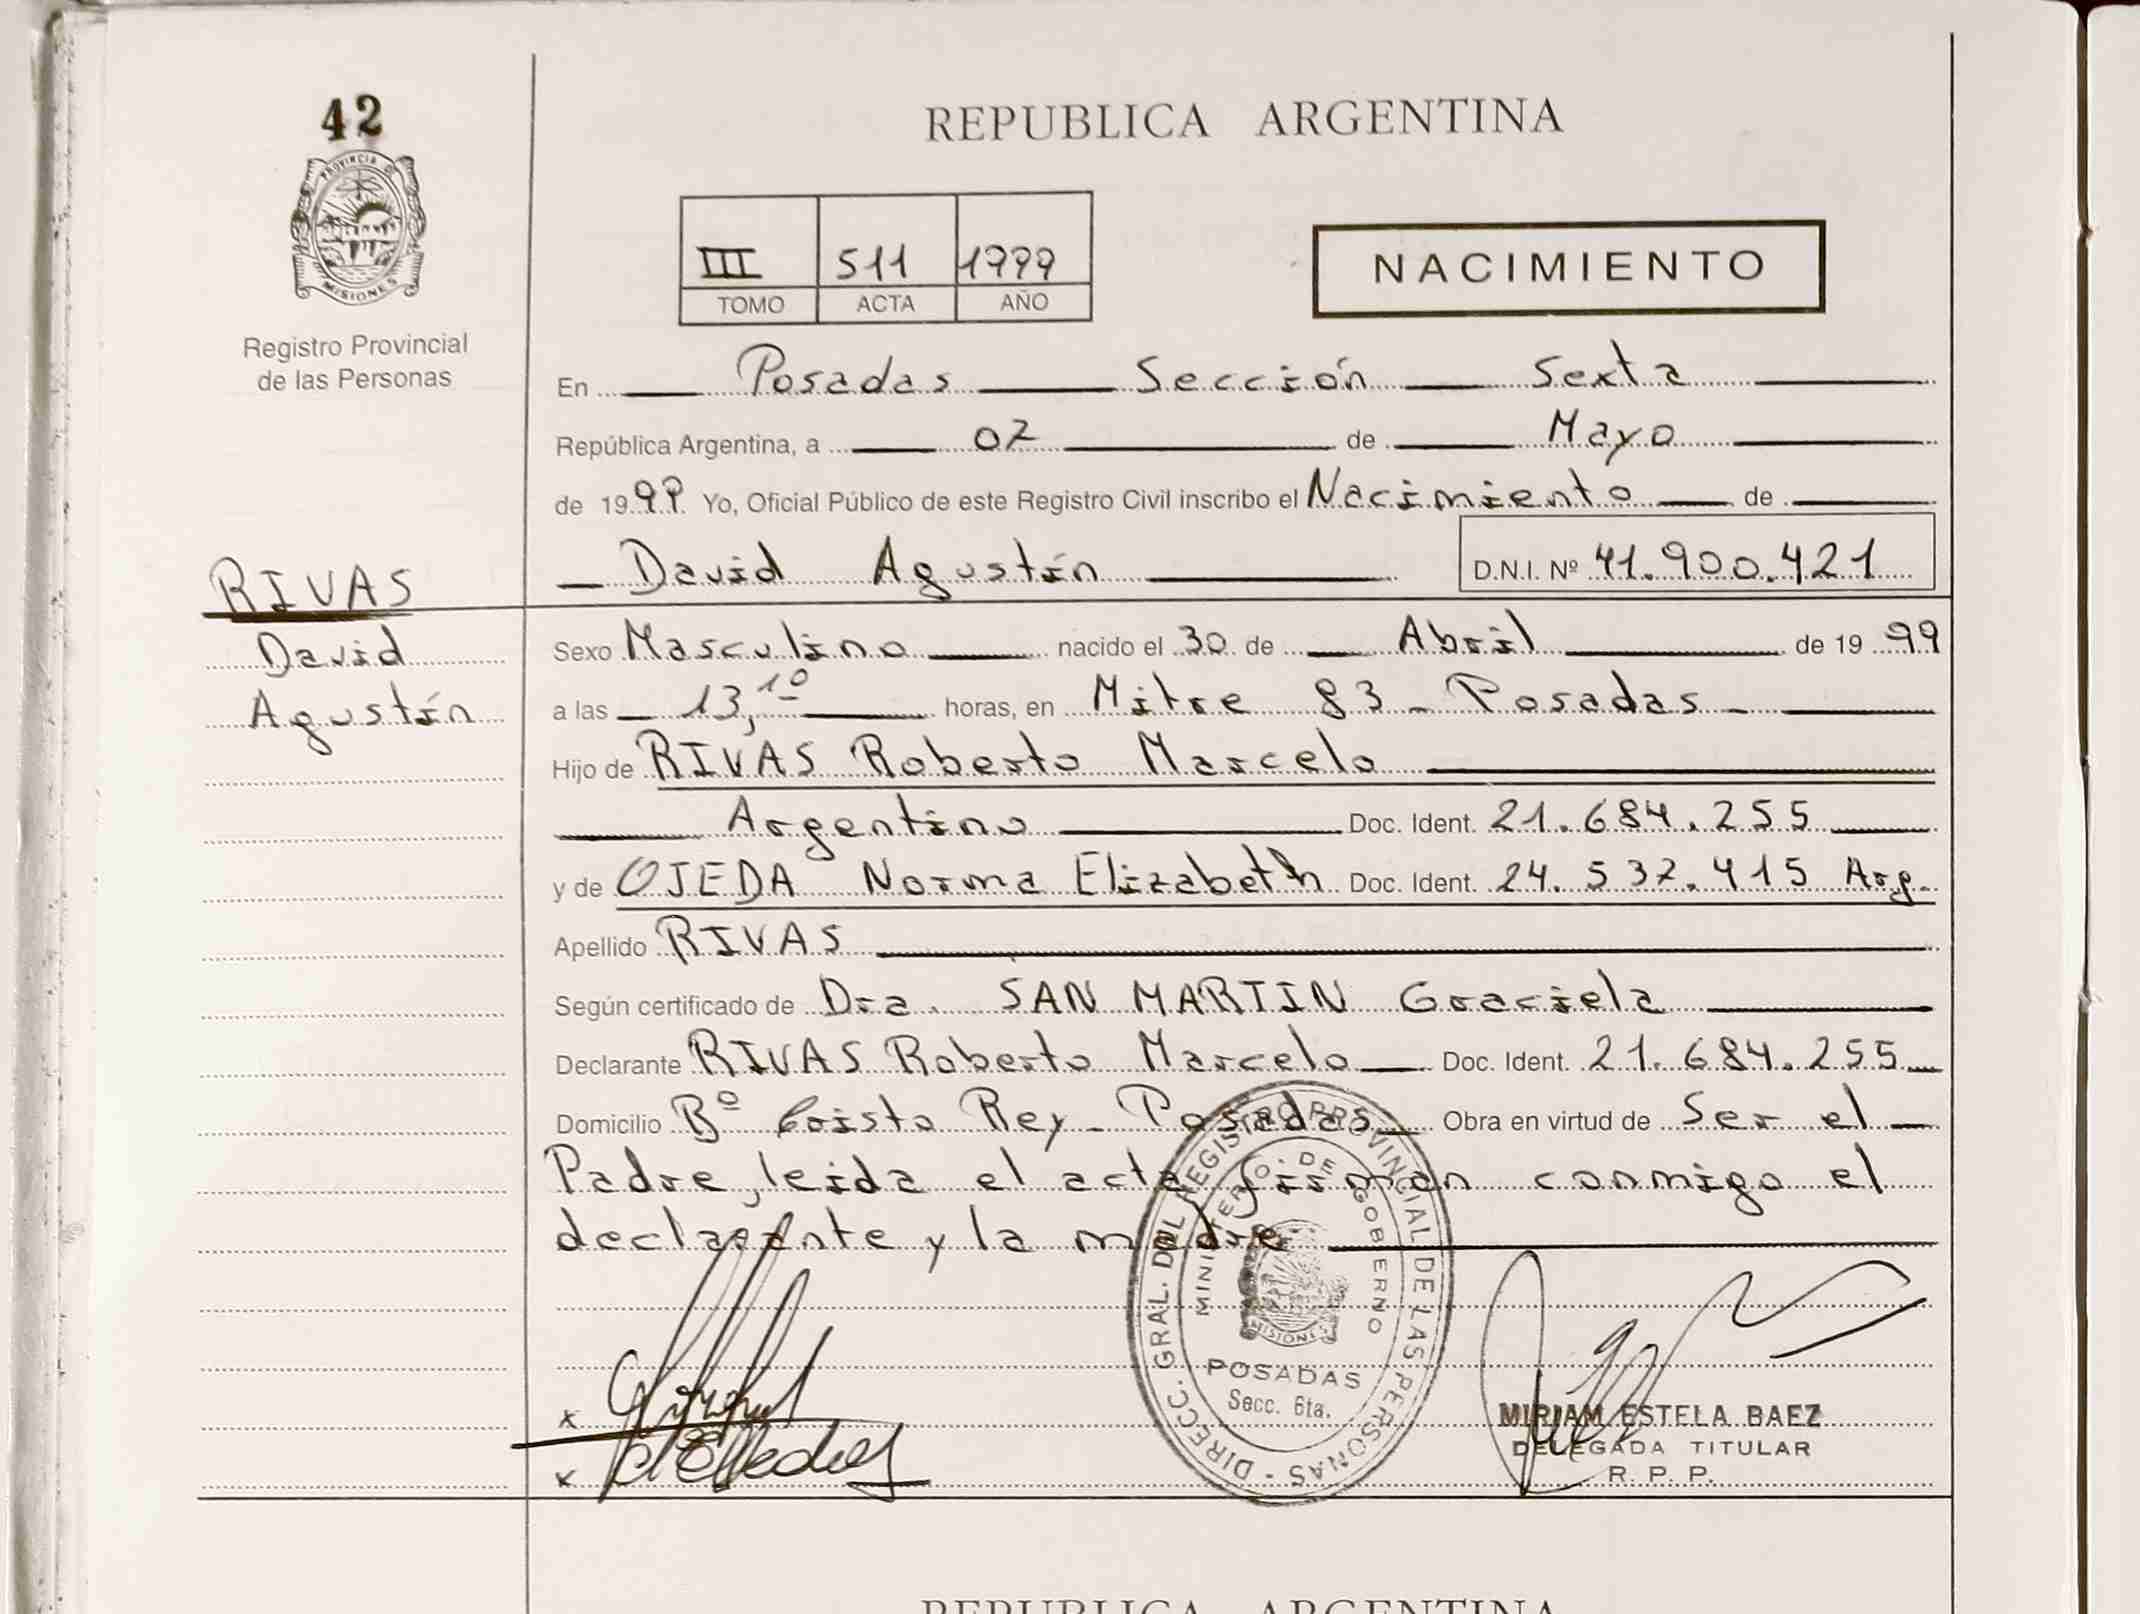 42
PROVINCIA DE
MISIONES
Registro Provincial
de las Personas
REPUBLICA ARGENTINA
III 511 1999
TOMO ACTA AÑO
NACIMIENTO
En Posadas Sección Sexta
República Argentina, a 02 de Mayo
de 1999 Yo, Oficial Público de este Registro Civil inscribo el Nacimiento de
David Agustín D.N.I. Nº 41.900.421
RIVAS
David
Agustín
Sexo Masculino nacido el 30 de Abril de 1999
a las 13,10 horas, en Mitre 83 - Posadas -
Hijo de RIVAS Roberto Marcelo
Argentino Doc. Ident. 21.684.255
y de OJEDA Norma Elizabeth Doc. Ident. 24.532.415 Arg.
Apellido RIVAS
Según certificado de Dra. SAN MARTIN Graciela
Declarante RIVAS Roberto Marcelo Doc. Ident. 21.684.255
Domicilio Bº Cristo Rey - Posadas Obra en virtud de Ser el
Padre, leida el acta firman conmigo el
declarante y la madre
DIRECC. GRAL. DEL REGISTRO PROVINCIAL DE LAS PERSONAS -
MINISTERIO DE GOBIERNO
MISIONES
POSADAS
Secc. 6ta.
x
x
MIRIAM ESTELA BAEZ
DELEGADA TITULAR
R. P. P.
REPUBLICA ARGENTINA